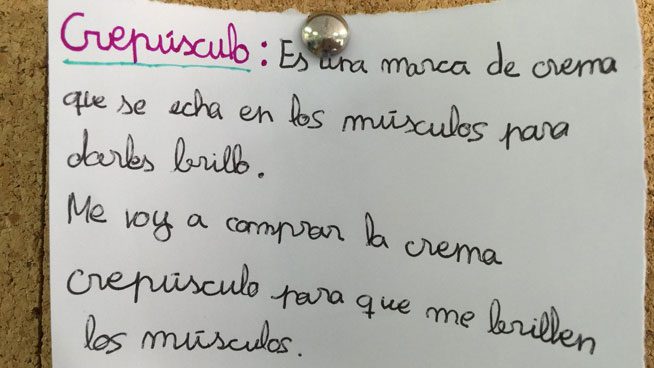 Crepúsculo: Es una marca de crema
que se echa en los músculos para
darles brillo.
Me voy a comprar la crema
crepúsculo para que me brillen
los músculos.